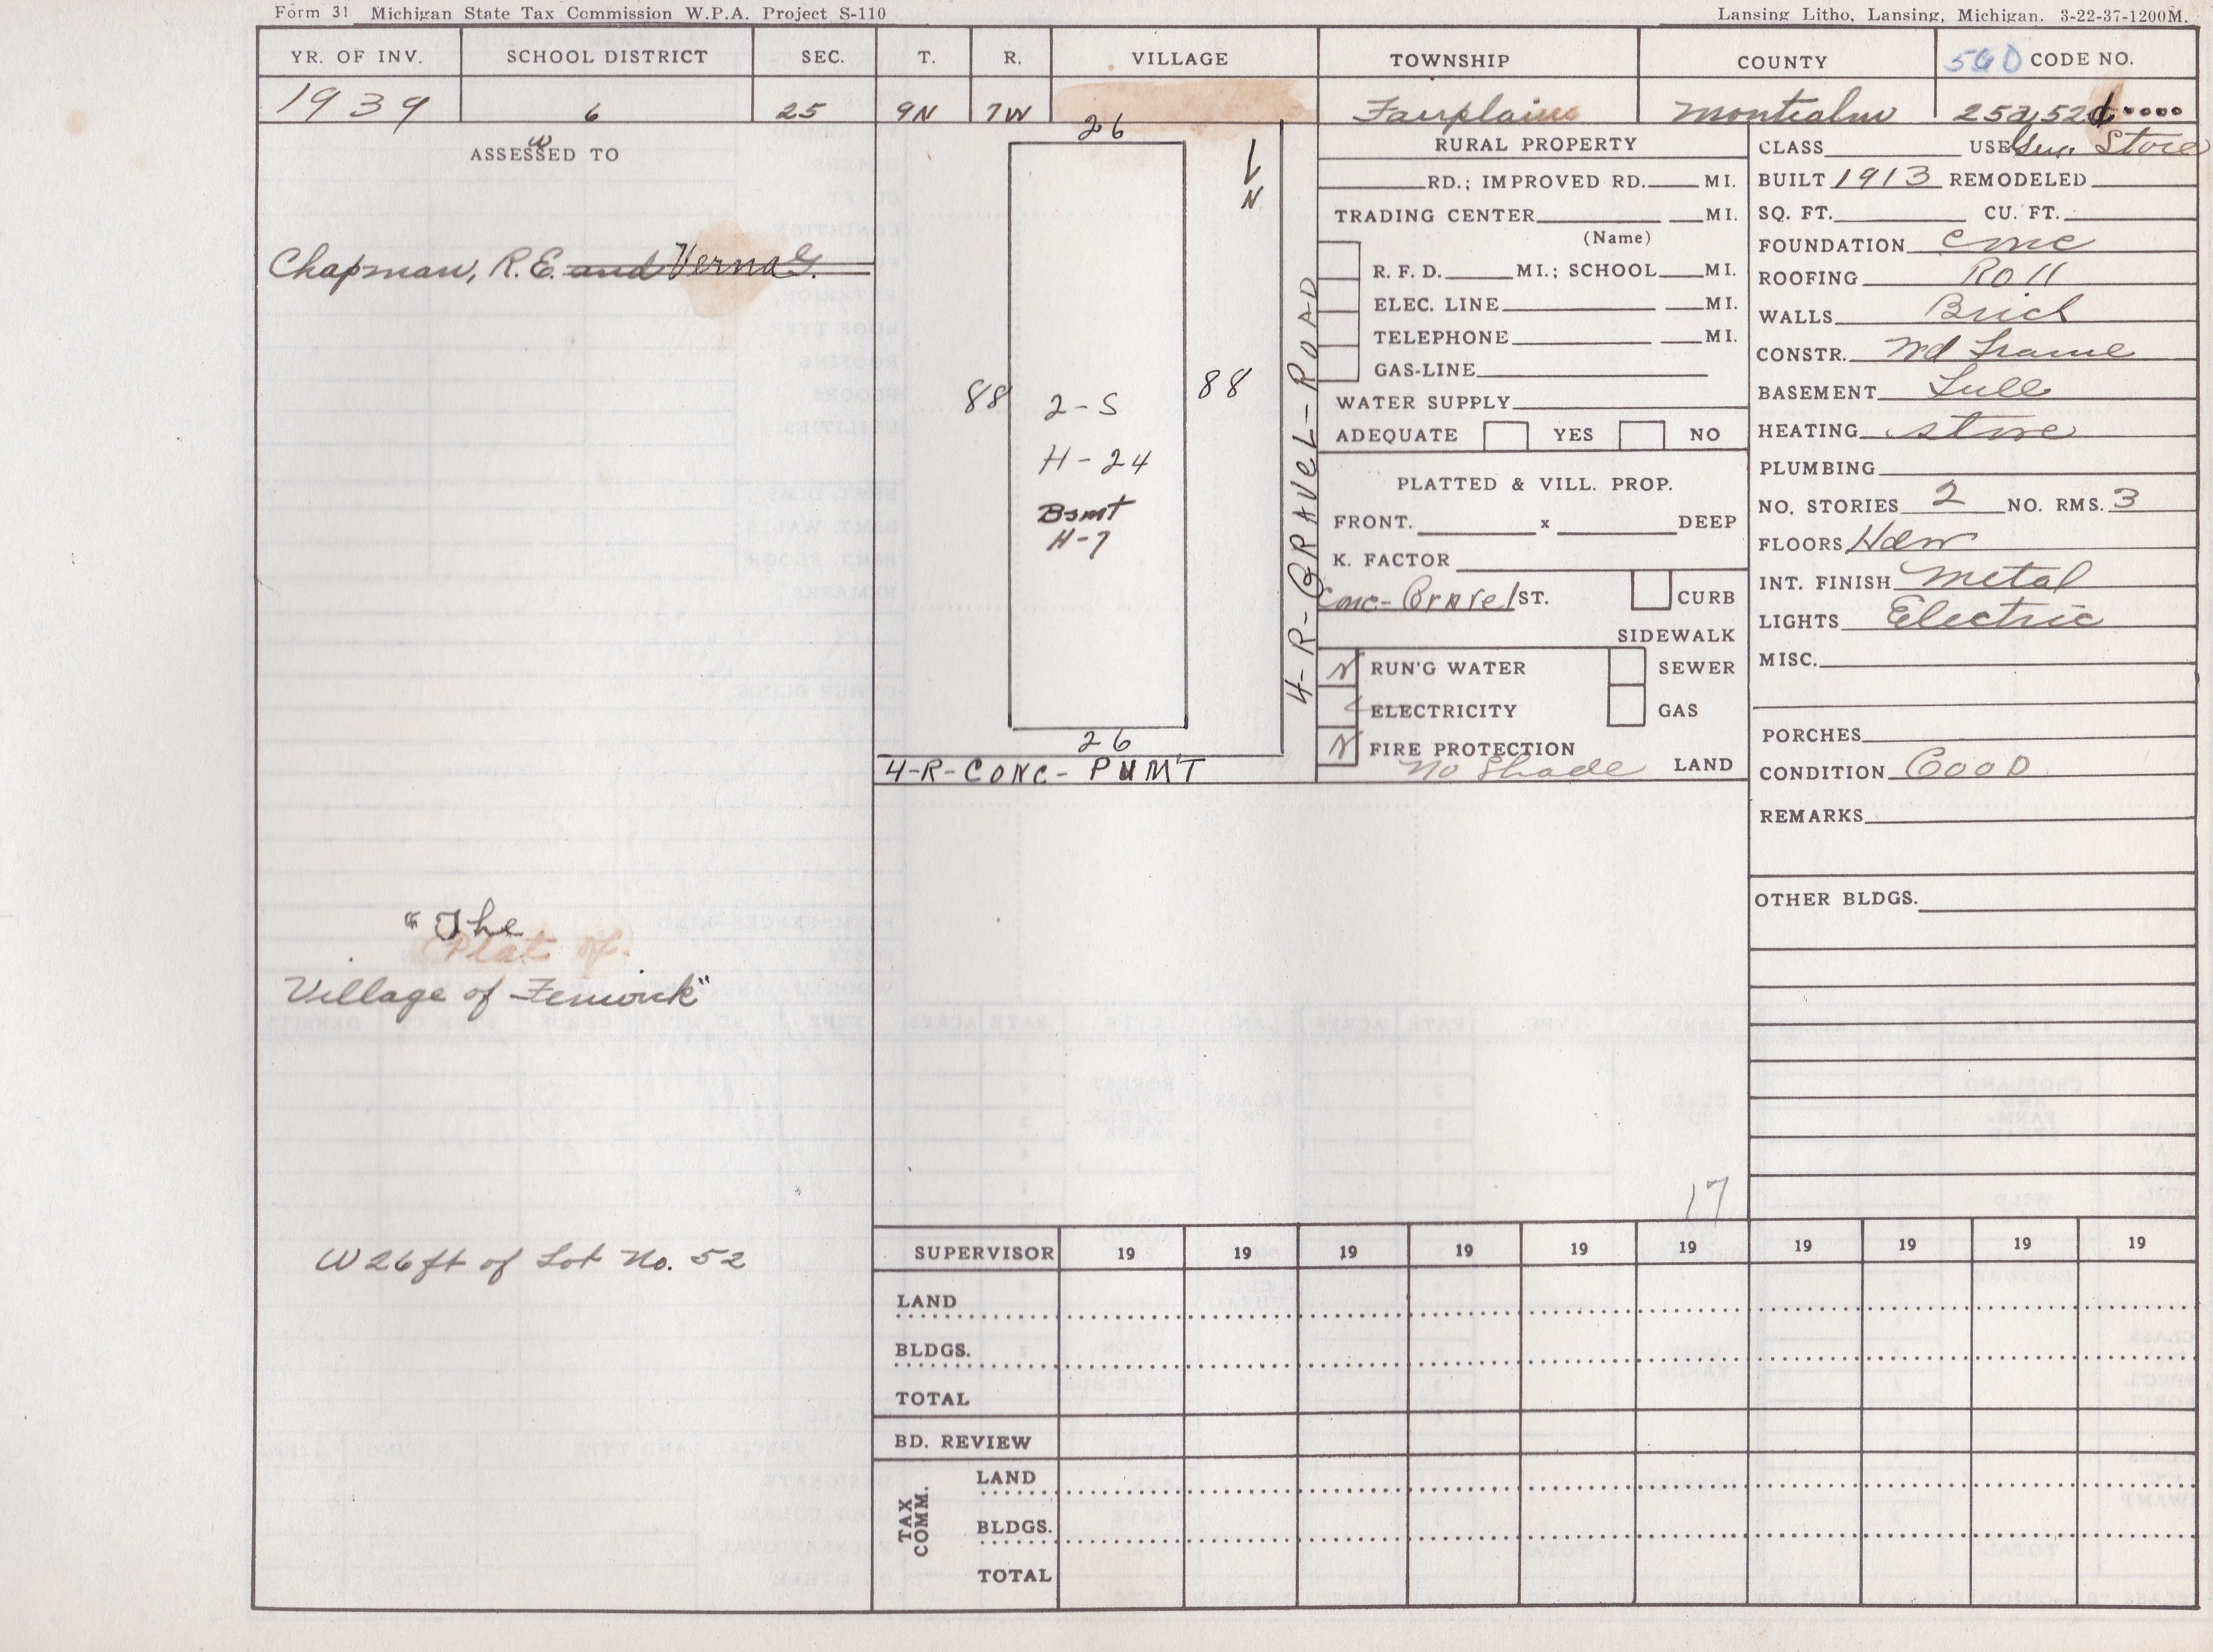 Form 31 Michigan State Tax Commission W.P.A. Project S-110
Lansing Litho, Lansing, Michigan. 3-22-37-1200M.
YR. OF INV. SCHOOL DISTRICT SEC. T. R. VILLAGE TOWNSHIP COUNTY CODE NO.
1939 6 25 9N 7W Fairplains Montcalm
ASSESSED TO
W
Chapman, R.E. and Verna G.
"The
Plat of
Village of Fenwick"
W 26 ft of Lot No. 52
26
N
88
88
2-S
H-24
Bsmt
H-7
26
4-R-GRAVEL-ROAD
4-R-CONC-PVMT
RURAL PROPERTY
RD.; IMPROVED RD. MI.
TRADING CENTER MI.
(Name)
R. F. D. MI.; SCHOOL MI.
ELEC. LINE MI.
TELEPHONE MI.
GAS-LINE
WATER SUPPLY
ADEQUATE YES NO
PLATTED & VILL. PROP.
FRONT. x DEEP
K. FACTOR
Conc-Gravel ST. CURB
SIDEWALK
N RUN'G WATER SEWER
ELECTRICITY GAS
N FIRE PROTECTION
No Shade LAND
CLASS USE Gen. Store
BUILT 1913 REMODELED
SQ. FT. CU. FT.
FOUNDATION Conc
ROOFING Roll
WALLS Brick
CONSTR. Wd Frame
BASEMENT Full
HEATING Stove
PLUMBING
NO. STORIES 2 NO. RMS. 3
FLOORS Hdw
INT. FINISH Metal
LIGHTS Electric
MISC.
PORCHES
CONDITION GOOD
REMARKS
OTHER BLDGS.
17
SUPERVISOR 19 19 19 19 19 19 19 19 19 19
LAND
BLDGS.
TOTAL
BD. REVIEW
TAX COMM.
LAND
BLDGS.
TOTAL